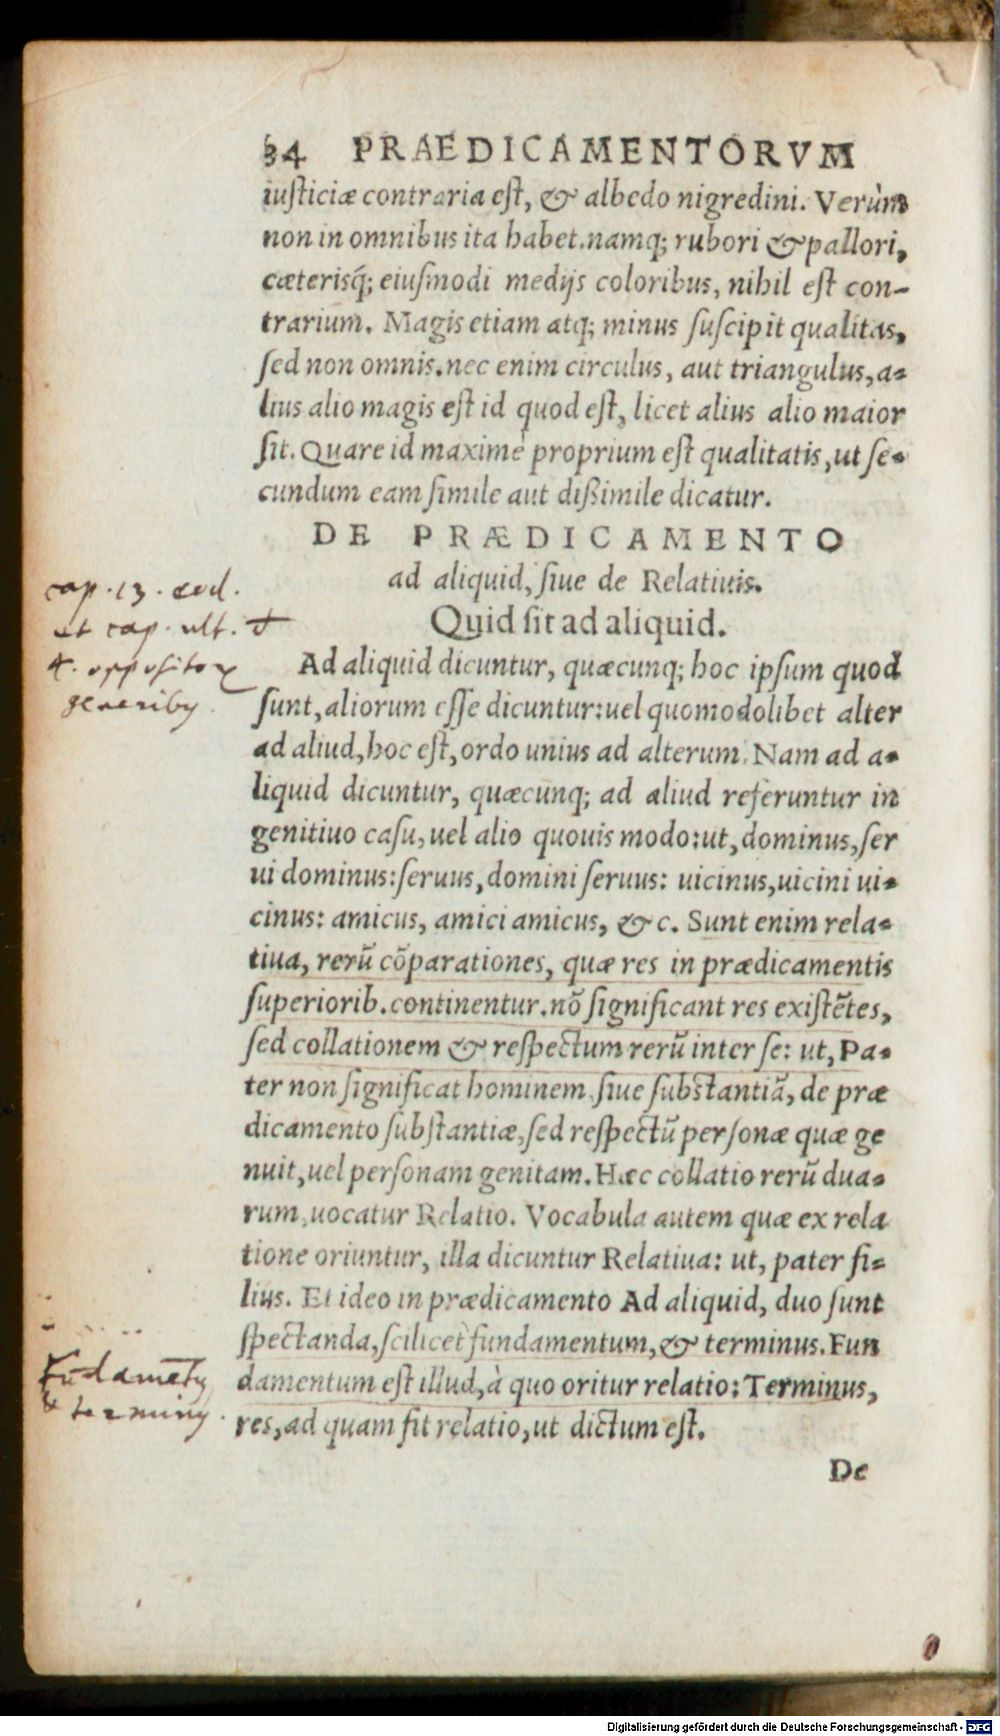 34 PRAEDICAMENTORVM
iusticiæ contraria est, & albedo nigredini. Verùm
non in omnibus ita habet. namq; rubori & pallori,
cæterisq́; eiusmodi medijs coloribus, nihil est con-
trarium. Magis etiam atq; minus suscipit qualitas,
sed non omnis. nec enim circulus, aut triangulus, a-
lius alio magis est id quod est, licet alius alio maior
sit. Quare id maximè proprium est qualitatis, ut se-
cundum eam simile aut dißimile dicatur.
DE PRÆDICAMENTO
ad aliquid, siue de Relatiuis.
Quid sit ad aliquid.
cap. 13. eod.
et cap. ult. &
4. oppositorum
generibus
Ad aliquid dicuntur, quæcunq; hoc ipsum quod
sunt, aliorum esse dicuntur: uel quomodolibet alter
ad aliud, hoc est, ordo unius ad alterum. Nam ad a-
liquid dicuntur, quæcunq; ad aliud referuntur in
genitiuo casu, uel alio quouis modo: ut, dominus, ser
ui dominus: seruus, domini seruus: uicinus, uicini ui-
cinus: amicus, amici amicus, & c. Sunt enim rela-
tiua, rerū cōparationes, quæ res in prædicamentis
superiorib. continentur. nō significant res existētes,
sed collationem & respectum rerū inter se: ut, Pa-
ter non significat hominem, siue substantiā, de præ
dicamento substantiæ, sed respectū personæ quæ ge
nuit, uel personam genitam. Hæc collatio rerū dua-
rum, uocatur Relatio. Vocabula autem quæ ex rela
tione oriuntur, illa dicuntur Relatiua: ut, pater fi-
lius. Et ideo in prædicamento Ad aliquid, duo sunt
spectanda, scilicet fundamentum, & terminus. Fun
damentum est illud, à quo oritur relatio: Terminus,
res, ad quam fit relatio, ut dictum est.
Fūdamētū
& terminus.
De
Digitalisierung gefördert durch die Deutsche Forschungsgemeinschaft - DFG